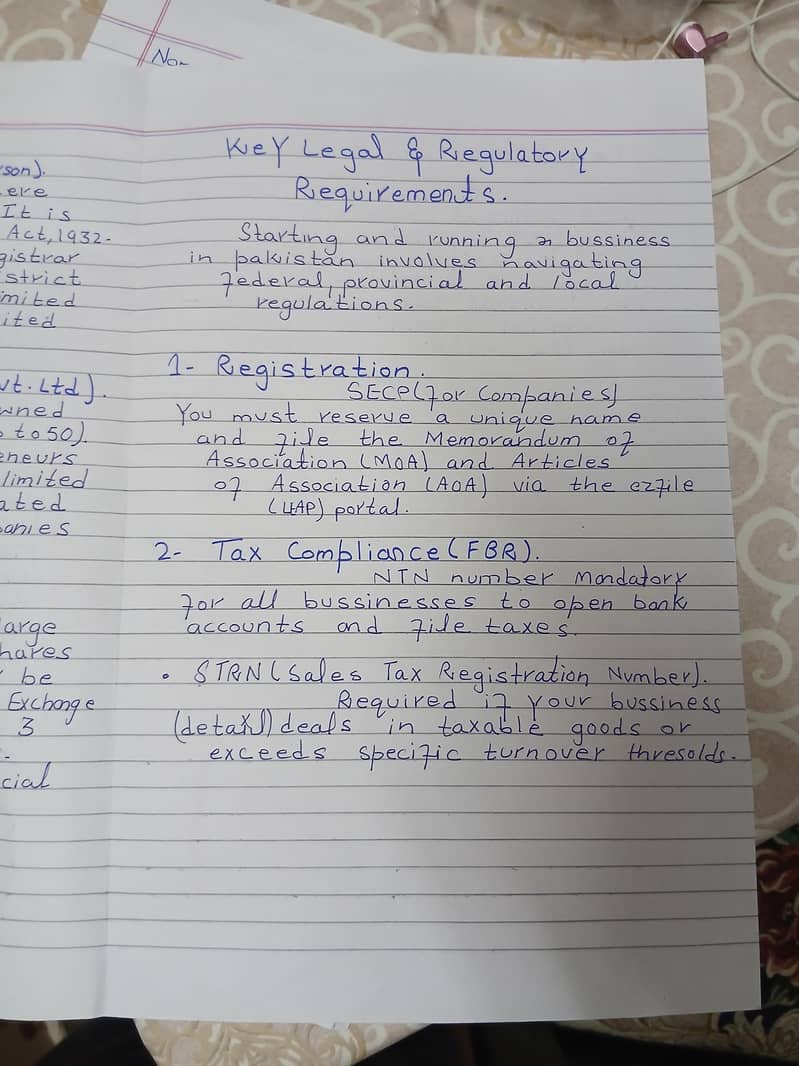 No
son).
ere
It is
Act, 1932.
gistrar
strict
mited
ited
vt. Ltd).
wned
to 50)
eneurs
limited
ated
panies
arge
hares
be
Exchange
3
cial
Key Legal & Regulatory
Requirements.
Starting and running a bussiness
in pakistan involves navigating
federal, provincial and local
regulations.
1- Registration.
SECP (for Companies)
You must reserve a unique name
and file the Memorandum of
Association (MOA) and Articles
of Association (AOA) via the ezfile
(LEAP) portal.
2- Tax Compliance (FBR).
NTN number Mandatory
for all bussinesses to open bank
accounts and file taxes.
• STRN (Sales Tax Registration Number).
Required if your bussiness
deals in taxable goods or
exceeds specific turnover thresolds.